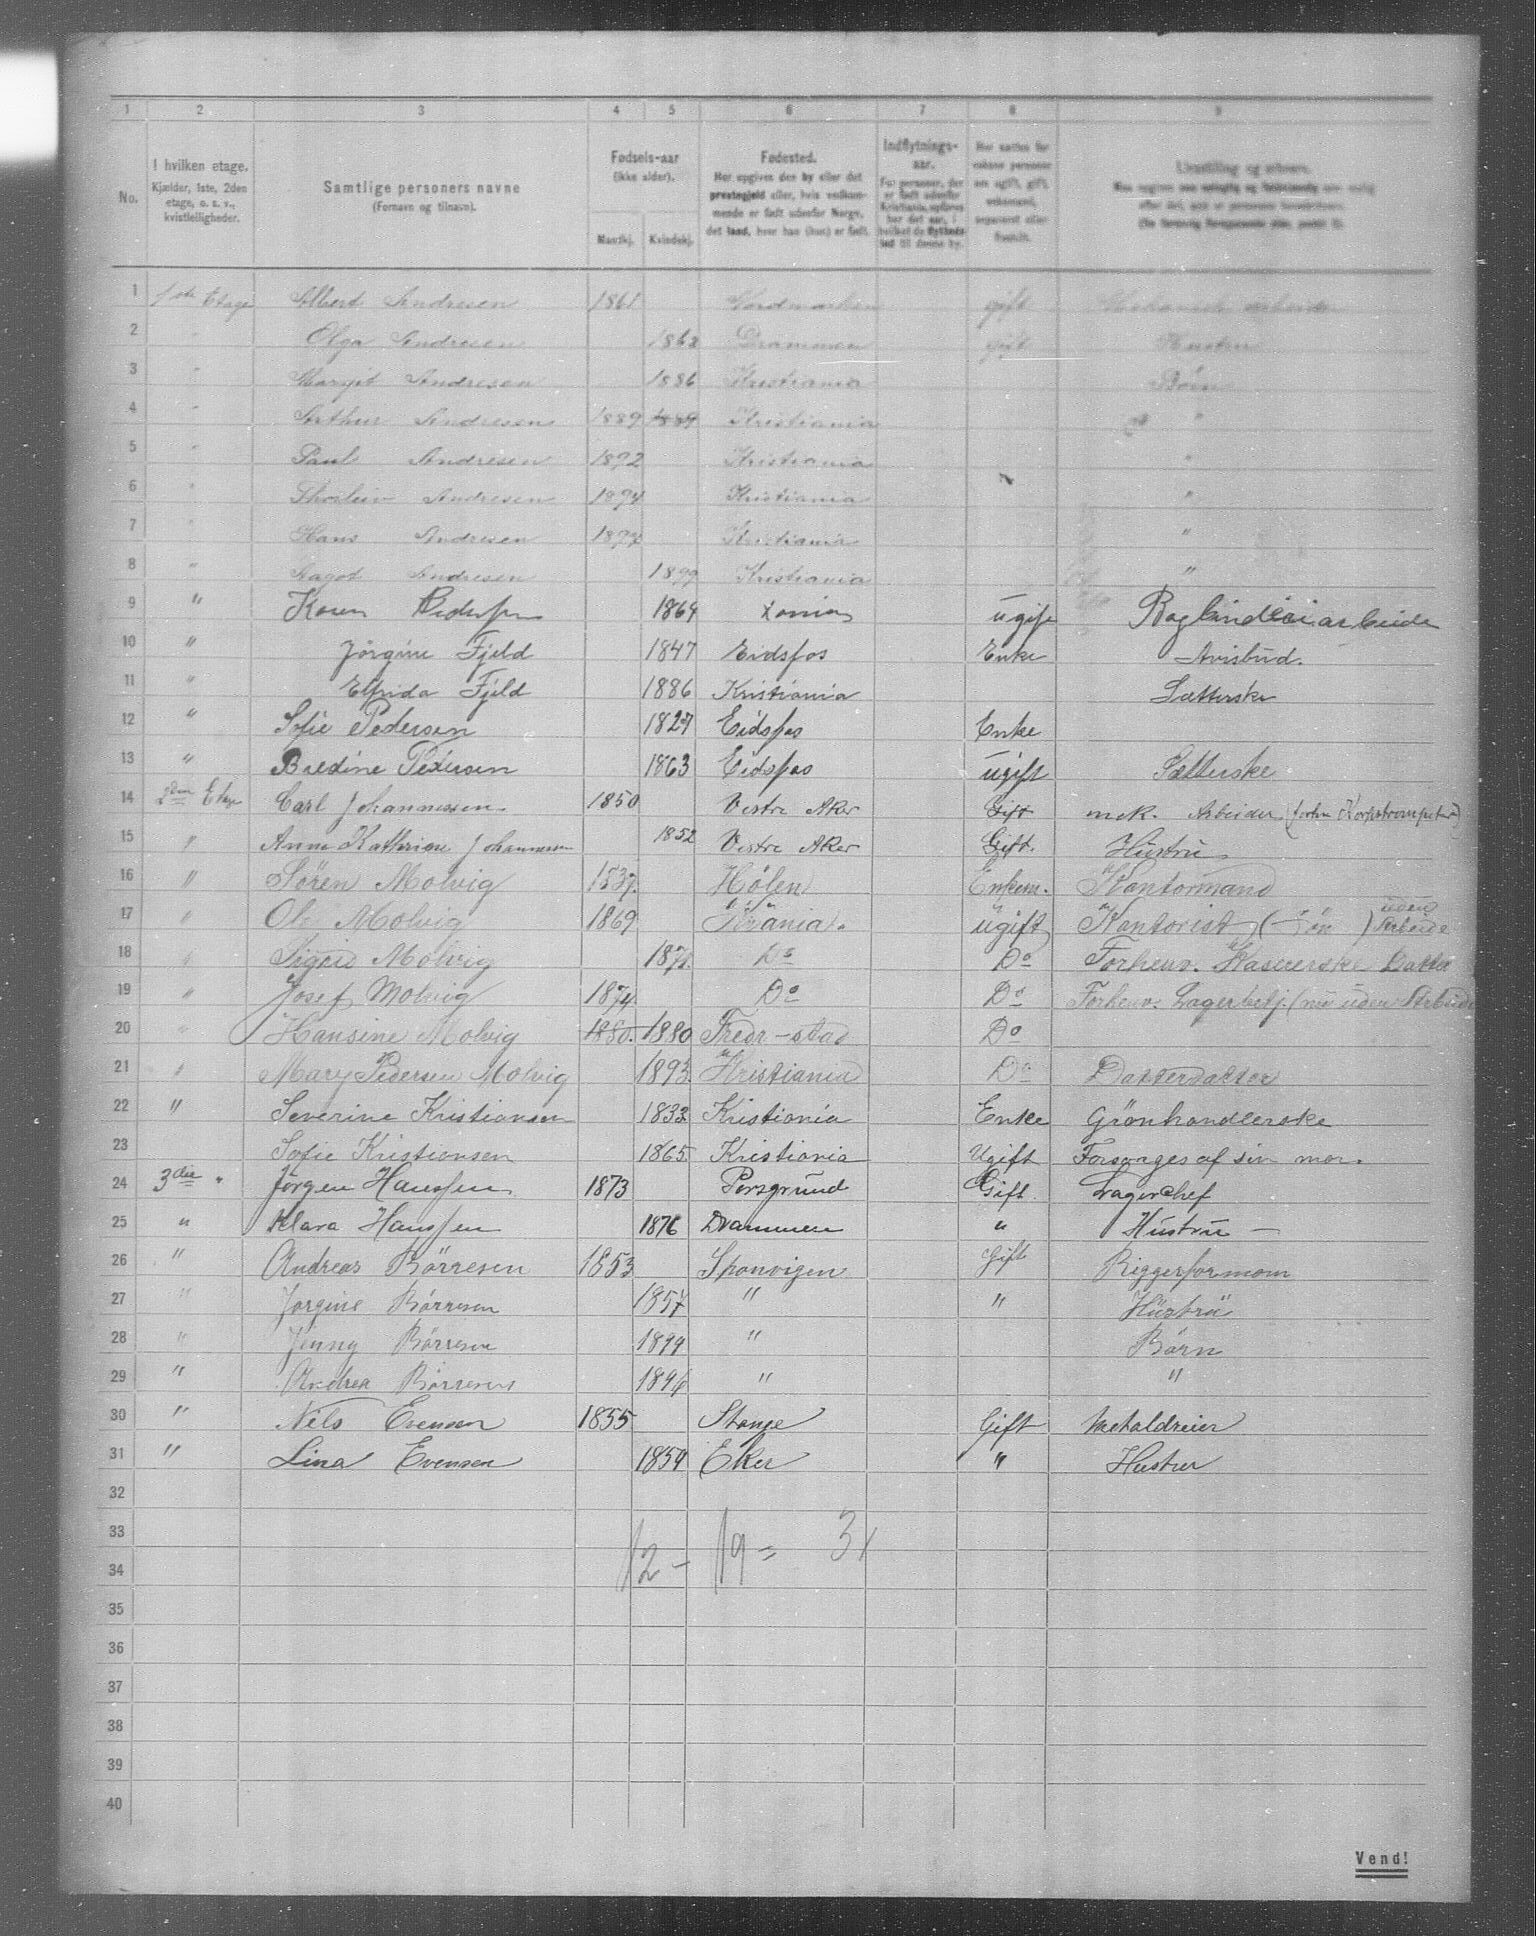 1 2 3 4 5 6 7 8 9
No. I hvilken etage. Kjælder, 1ste, 2den etage, o. s. v., kvistleiligheder. Samtlige personers navne (Fornavn og tilnavn). Fødsels-aar (ikke alder). Mandkj. Kvindekj. Fødested. Her opgives den by eller det præstegjeld eller, hvis vedkommende er født udenfor Norge, det land, hvor han (hun) er født. Indflytnings-aar. For personer, der er født udenfor Kristiania, opføres her det aar, i hvilket de flyttede ind til denne by. Her sættes for voksne personer om ugift, gift, enkemand, separeret eller fraskilt.
1 1ste Etage Albert Andresen 1861 Nordmarken gift Mekanisk arbeider
2 " Olga Andresen 1862 Drammen gift Hustru
3 " Margit Andresen 1886 Kristiania Børn
4 " Arthur Andresen 1889 1889 Kristiania "
5 " Paul Andresen 1892 Kristiania "
6 " Thorleiv Andresen 1894 Kristiania "
7 " Hans Andresen 1897 Kristiania "
8 " Aagot Andresen 1899 Kristiania "
9 " Karen 1864 ugift Bogbinderiarbeide
10 " Jörgine Fjeld 1847 Eidsfos Enke Avisbud.
11 " Elfrida Fjeld 1886 Kristiania Sætterske
12 " Sofie Pedersen 1827 Eidsfos Enke
13 " Baldine Pedersen 1863 Eidsfos ugift Sætterske
14 2den Etage Carl Johannessen 1850 Vestre Aker Gift mek. Arbeider (forhn Korpstrompeter)
15 " Anna Kathrine Johannessen 1852 Vestre Aker Gift. Hustru
16 " Sören Molvig 1837. Hölen Enkem. Kontormand
17 " Ole Molvig 1869 Kr.ania. ugift Kontorist (Sön) uden Arbeide
18 " Sigrid Molvig 1871. Do Do Forhenv. Kasererske Datter
19 " Josef Molvig 1874. Do Do Forhenv. Lagerbetj. (nu uden Arbeide
20 " Hansine Molvig 1880. 1880 Fredr-stad Do
21 " Mary Pedersen Molvig 1893. Kristiania Do Datterdatter
22 " Severine Kristiansen 1833. Kristiania Enke Grönhandlerske
23 Sofie Kristiansen 1865. Kristiania Ugift Forsørges af sin mor.
24 3die " Jørgen Hanssen 1873 Porsgrund Gift Lagerchef
25 " Klara Hanssen 1876 Drammen " Hustru —
26 " Andreas Börresen 1853 Spanvigen Gift Riggerformann
27 " Jorgine Börresen 1857 " " Hustru
28 " Jenny Börresen 1894 " Børn
29 " Andrea Börresen 1896 " "
30 " Nils Evensen 1855 Stange Gift Metaldreier
31 " Lina Evensen 1859 Eker " Hustru
32
33
12 - 19 = 31
34
35
36
37
38
39
40
Vend!